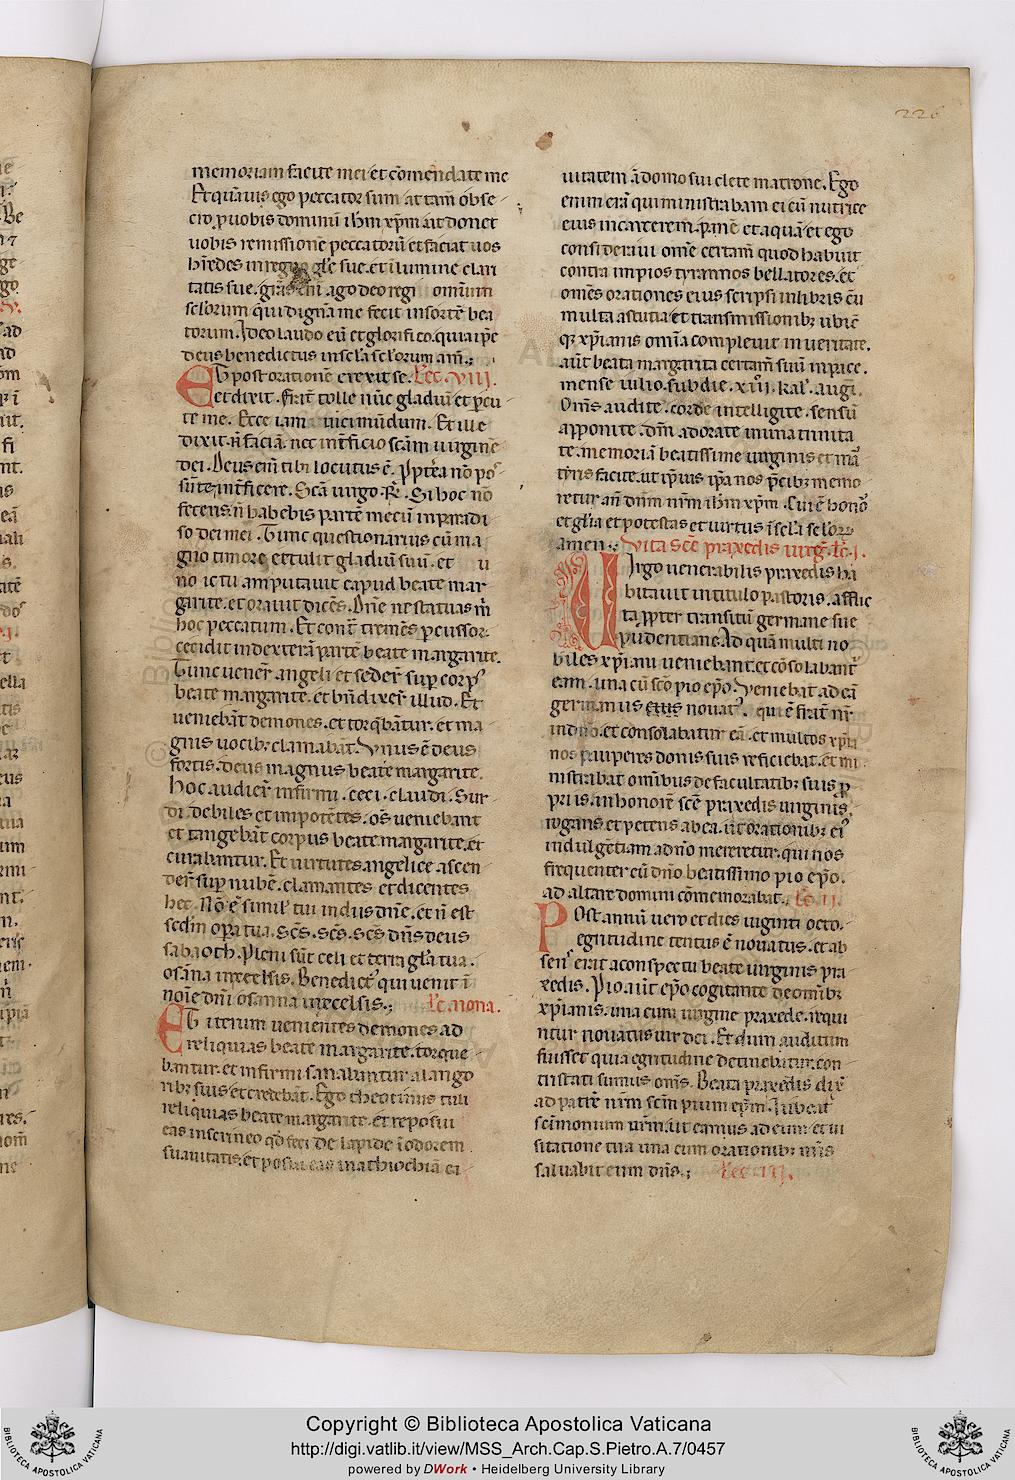 226
memoriam facite mei et co͞mendate me
Et qua͞uis ego peccator sum at tam͞ obse
cro ꝑ uobis dominu͞ ih͞m xp͞m ut donet
uobis remissione͞ peccatoru͞ et faciat uos
h͞redes in regno gl͞e sue. et i͞ lumine clari
tatis sue. gr͞as eni͞ ago deo regi omnium
sc͞lorum qui digna͞ me fecit in sorte͞ bea
torum. Ideo laudo eu͞ et glorifico. quia ip͞e
deus benedictus in sc͞la sc͞lorum am͞.
Et post oratione͞ erexit se. Lec. VIII.
et dixit. Frat͞ tolle nu͞c gladiu͞ et ꝑcu
te me. Ecce iam uici mu͞dum. Et ille
dixit. n͞ facia͞. nec int͞ficio sc͞am uirgine͞
dei. Deus eni͞ tibi locutus e͞. ꝓpt͞ea no͞ pos
su͞ te int͞ficere. Sc͞a uirgo. R͞. Si hoc no͞
feceris n͞ habebis parte͞ mecu͞ in paradi
so dei mei. Tunc questionarius cu͞ ma
gno timore ettulit gladiu͞ suu͞. et u
no ictu amputauit capud beate mar
garite. et orauit dice͞s. Dn͞e ne statuas m͞
hoc peccatum. Et cont͞ treme͞s ꝑcussor.
cecidit in dextera͞ parte͞ beate margarite.
Tunc uener͞ angeli et seder͞ suꝑ corpꝰ
beate margarite. et bn͞dixer͞ illud. Et
ueniebat͞ demones. et torq͞ba͞tur. et ma
gnis uocib; clamabat͞. Vnus e͞ deus
fortis. deus magnus beate margarite.
Hoc audier͞ infirmi. ceci. claudi. Sur
di. debiles et impote͞tes. om͞s ueniebant
et tangeba͞t corpus beate margarite. et
curabantur. Et uirtutes angelice ascen
der͞ suꝑ nube͞. clamantes et dicentes
hec. No͞ e͞ simil' tui in diis dn͞e. et n͞ est
sedm͞ opera tua. Sc͞s. Sc͞s. Sc͞s dn͞s deus
sabaoth. Pleni su͞t celi et terra gl͞a tua.
osanna in excelsis. Benedictꝰ qui uenit i͞
no͞ie dn͞i osanna in excelsis. Lc͞. nona.
Et iterum uenientes demones ad
reliquias beate margarite. torque
bantur. et infirmi sanabantur a lango
rib; suis et credeba͞t. Ego theotimus tuli
reliquias beate margarite. et reposui
eas in scrineo qd͞ feci de lapide i͞ odorem
suauitatis. et posui eas in athiochia ci
uitatem a͞ domo sui clete matrone. Ego
enim era͞ qui ministrabam ei cu͞ nutrice
eius in carcerem. pane͞ et aqua͞ et ego
consideraui om͞e certam͞ quod habuit
contra impios tyrannos bellatores. et
om͞es orationes eius scripsi in libris cu͞
multa astutia et transmissionib; ubic͞
q; xp͞ianis omnia compleuit in ueritate.
aut͞ beata margarita certam͞ suu͞ in pace.
mense iulio. sub die. xiii. kal'. augi͞.
Om͞s audite. corde intelligite. sensu͞
apponite. dm͞ adorate in una trinita
te. memoria͞ beatissime uirginis et ma͞
tyris facite. ut ipsius ip͞a nos p͞cib; memo
retur an͞ dn͞m nr͞m ih͞m xp͞m. Cui e͞ hono͞
et gl͞ia et potestas et uirtus i͞ sc͞la sc͞lorꝝ
amen. Vita Sc͞e praxedis uirg͞. lc͞. i.
Uirgo uenerabilis praxedis ha
bitauit in titulo pastoris. afflic
ta ꝓpter transitu͞ germane sue
pudentiane. Ad qua͞ multi no
biles xp͞iani ueniebant. et co͞solabant͞
eam. una cu͞ sc͞o pio ep͞o. Veniebat ad ea͞
germanus eius nouatꝰ. qui e͞ frat͞ nr͞
in dn͞o. et consolabatur ea͞. et multos xp͞ia
nos pauperes donis suis reficiebat. et mi
nistrabat omnibus de facultatib; suis ꝓ
priis. in honore͞ sc͞e praxedis uirginis.
rogans et petens ab ea. ut orationib; eiꝰ
indulgetiam a dn͞o mereretur. qui nos
frequenter cu͞ dn͞o beatissimo pio ep͞o.
ad altare domini co͞memorabat. Lc͞. II.
Post annu͞ uero et dies uiginti octo.
egritudine tentus e͞ nouatus. et ab
sens erat a conspectu beate uirginis pra
xedis. Pio aut͞ ep͞o cogitante de om͞ib;
xp͞ianis. una cum uirgine praxede. requi
ritur nouatus uir dei. Et dum auditum
fuisset quia egritudine detinebatur. con
tristati sumus om͞s. Beata praxedis dix͞
ad patre͞ nr͞m sc͞m pium ep͞m. Iubeat
sc͞imonium ur͞m. ut eamus ad eum. et ui
sitatione tua una cum orationib; nr͞is
saluabit eum dn͞s. Lec. III.
Copyright © Biblioteca Apostolica Vaticana
http://digi.vatlib.it/view/MSS_Arch.Cap.S.Pietro.A.7/0457
powered by DWork • Heidelberg University Library
BIBLIOTECA APOSTOLICA VATICANA
BIBLIOTECA APOSTOLICA VATICANA